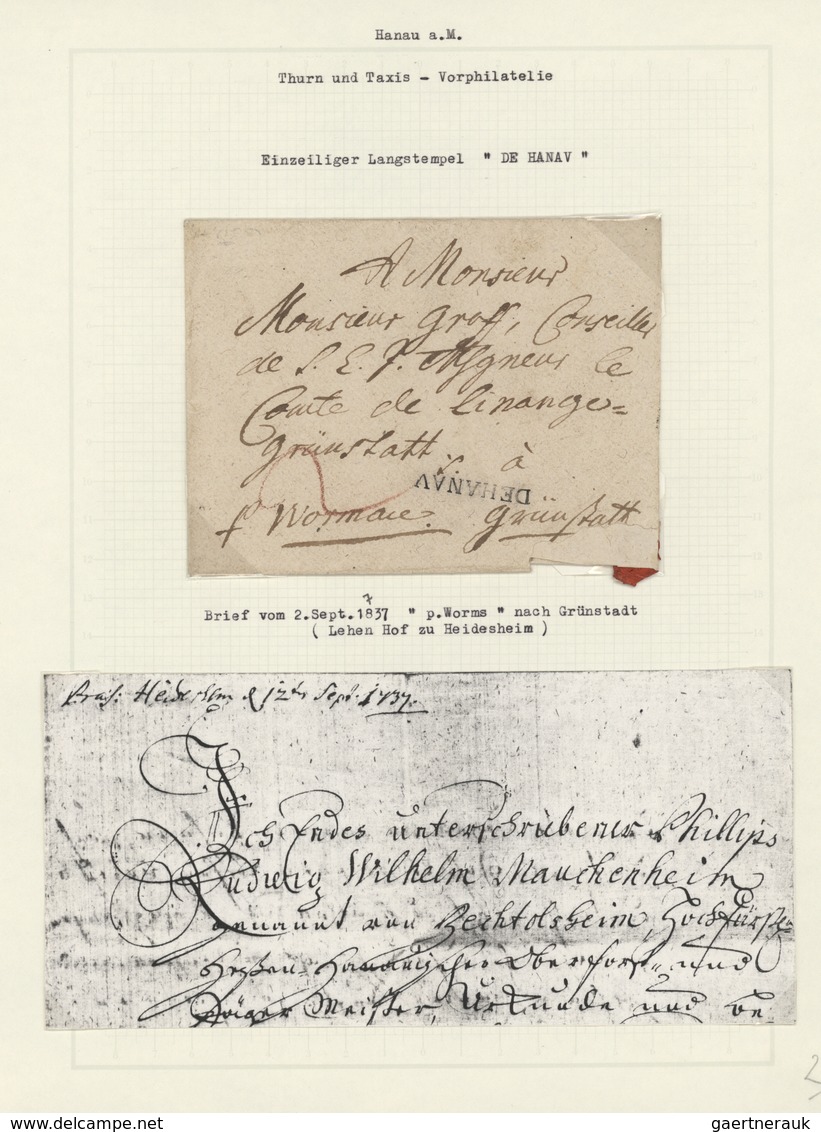 Hanau a.M.
Thurn und Taxis - Vorphilatelie
Einzeiliger Langstempel " DE HANAV "
A Monsieur
Monsieur Groff, Conseiller
de S. E. Msgneur le
Comte de Linange-
Grünstatt. à
DE HANAV
p Wormace. Grünstatt
7
Brief vom 2.Sept.1837 " p.Worms " nach Grünstadt
( Lehen Hof zu Heidesheim )
12ten Sept. 1737.
Ich Endes unterschriebener Phillips
Ludwig Wilhelm Mauchenheim
genannt von Bechtolsheim, Hochfürstl-
Heßen-Hanauischer Oberforst- und
Jäger Meister, Urkunde und be-
www.delcampe.net
gaertnerauk